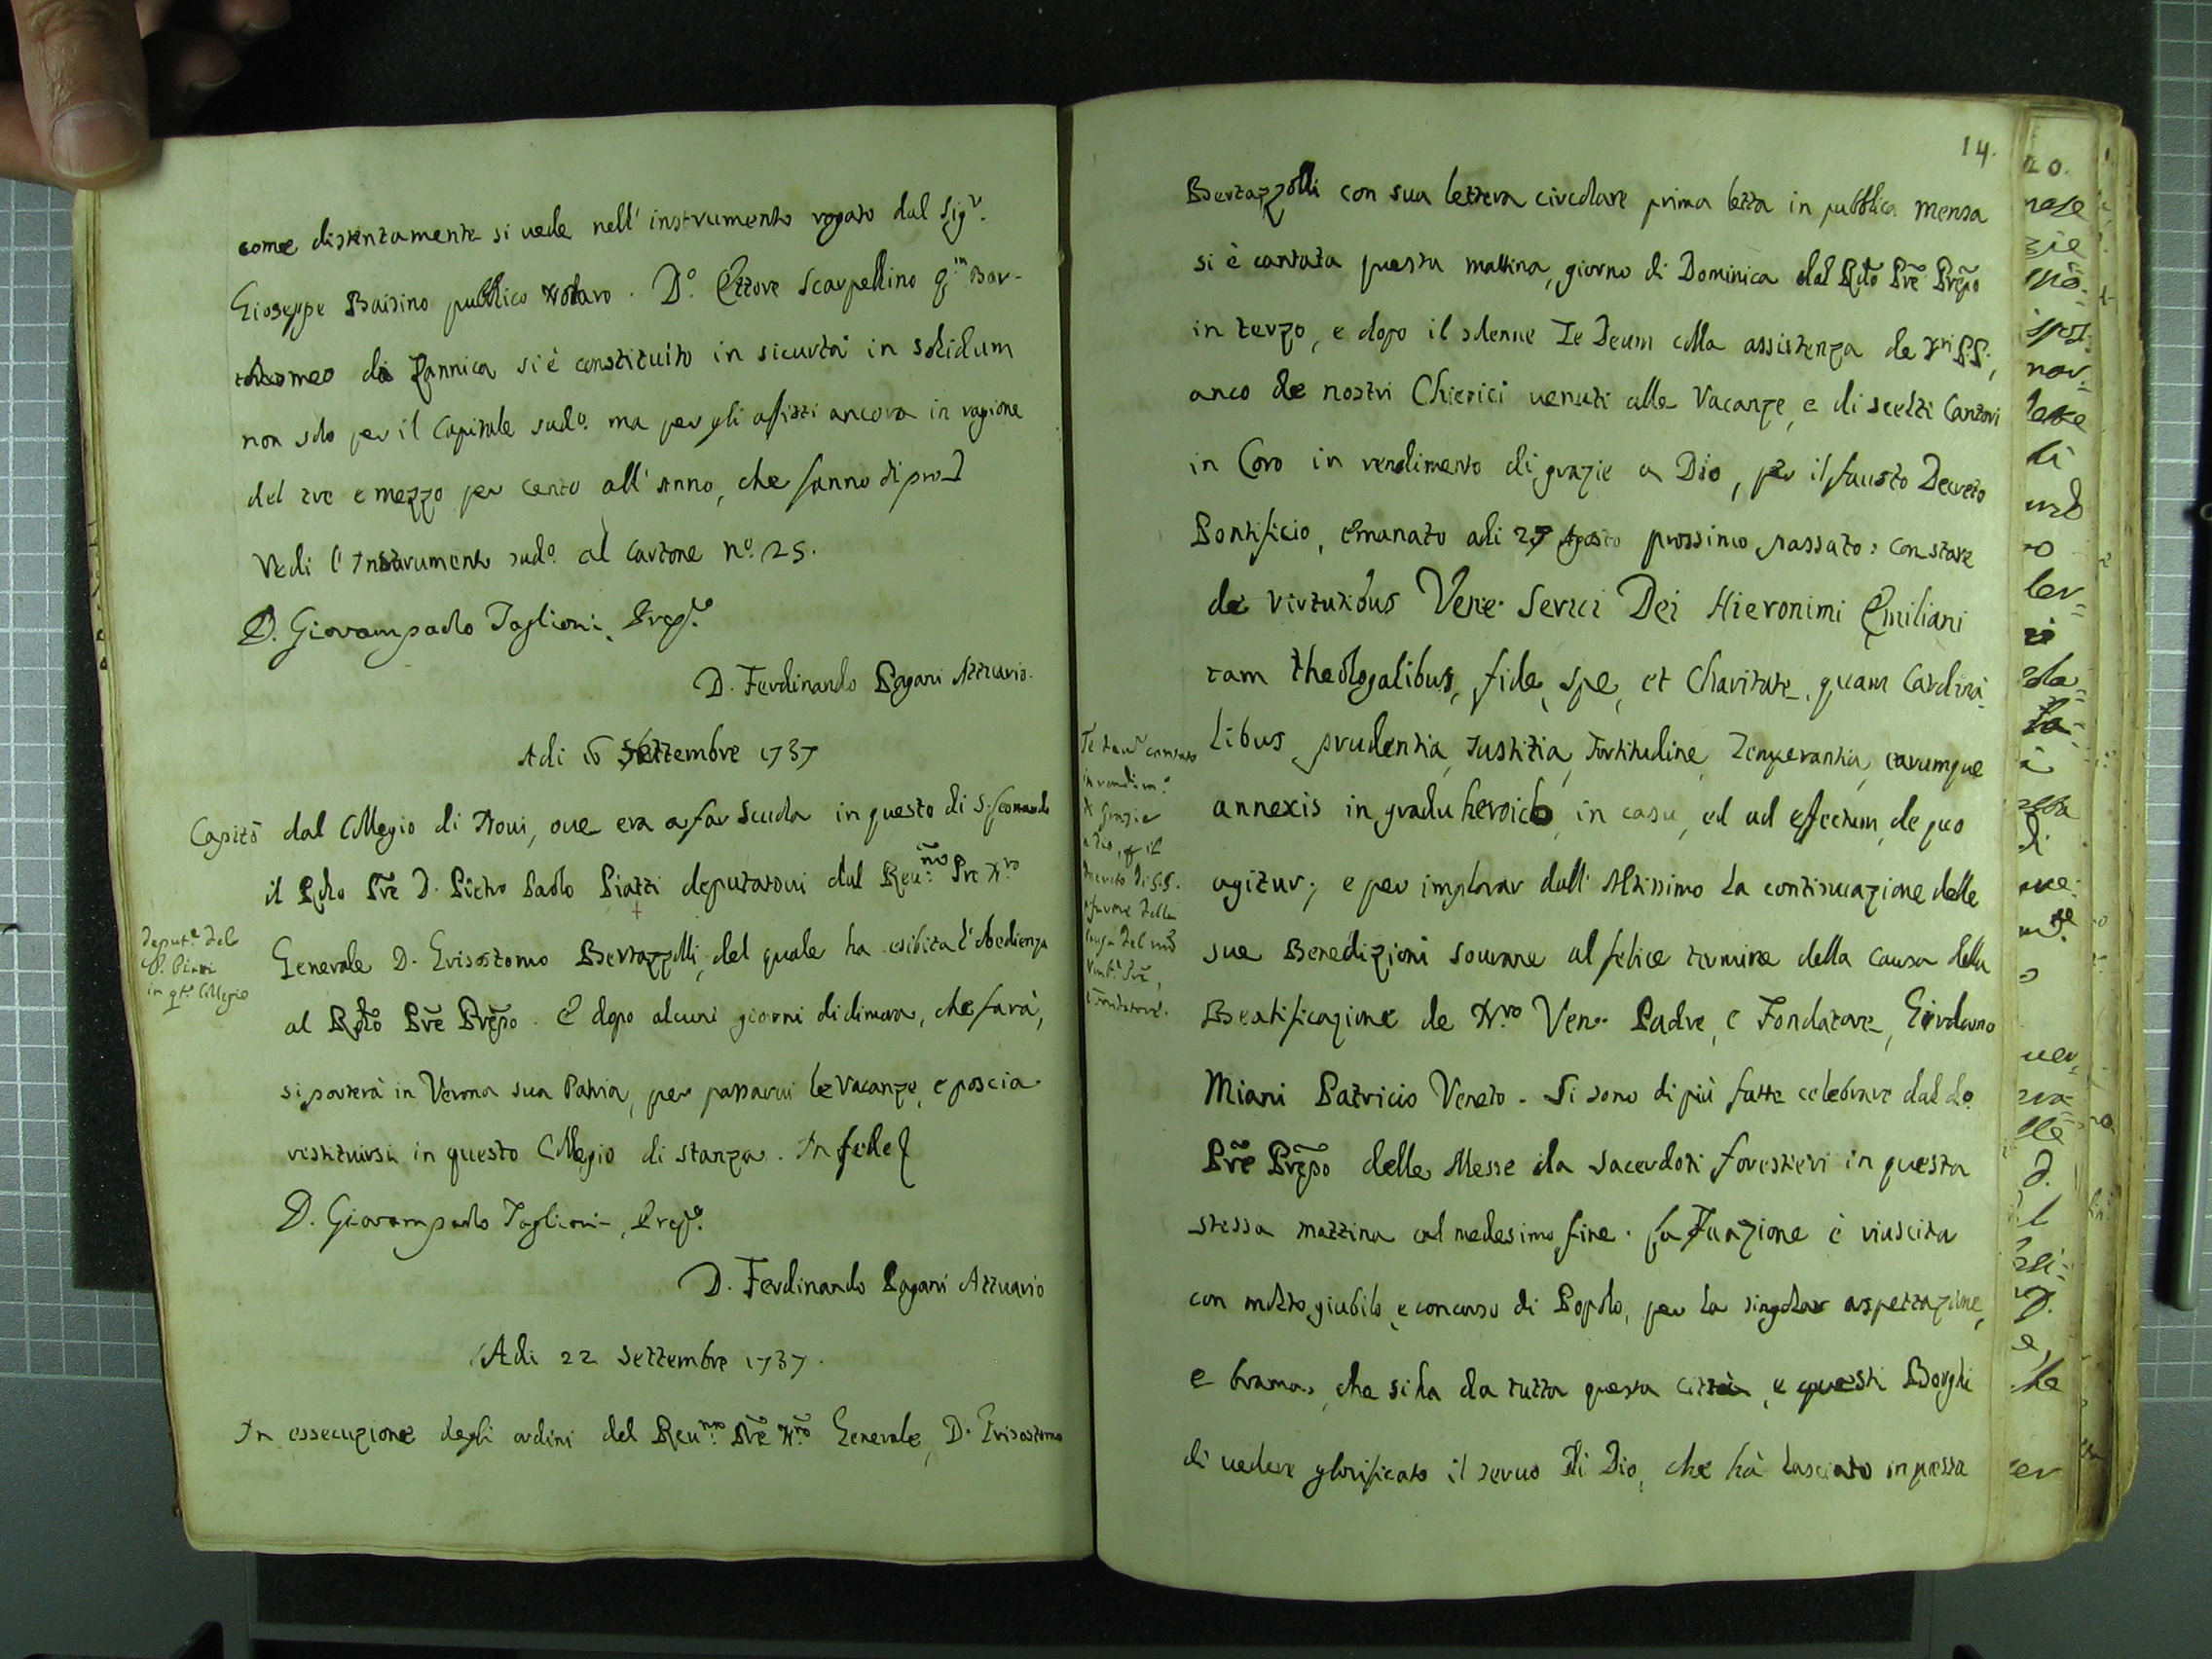 come distintamente si vede nell' instrumento rogato dal Sigr.
Gioseppe Baisino pubblico Notaro. Do. Ettore Scarpellino qm. Bar-
tholomeo di Zannica si è constituito in sicurtà in solidum
non solo per il Capitale sudo. ma per gli afitti ancora in ragione
del tre e mezzo per cento all' Anno, che sanno di pro
Vedi l'Instrumento sudo. al Cartone no. 25.
D. Giovampaolo Taglioni, Prepto
D. Ferdinando Pagani Attuario.
Adi 16 Settembre 1737
Capitò dal Collegio di Novi, ove era a far Scuola in questo di S. Leonardo
il Rdo Pre D. Pietro Paolo Piatti deputatovi dal Reu.mo Pre Nro
Generale D. Grisostomo Bertazzolli, del quale ha esibita l'obedienza
al Rdo Pre Prepo. E dopo alcuni giorni di dimora, che farà,
si porterà in Verona sua Patria, per passarvi le Vacanze, e poscia
restituirsi in questo Collegio di stanza. In fede
D. Giovampaolo Taglioni, Prepto.
D. Ferdinando Pagani Attuario
Adi 22 Settembre 1737.
In essecuzione degli ordini del Reu.mo Pre Nro Generale, D. Grisostomo
Deput.e del
P. Piatti
in qto. Collegio
14.
Bertazzolli con sua lettera circolare prima letta in pubblica mensa
si è cantata questa mattina, giorno di Dominica dal Rdo Pre Prepo
in terzo, e dopo il solenne Te Deum colla assistenza de Nri PP.,
anco de nostri Chierici venuti alle Vacanze, e di scelti Cantori
in Coro in rendimento di grazie a Dio, per il fausto Decreto
Pontificio, emanato adi 25 Agosto prossimo passato: constare
de Virtutibus Vene. Servi Dei Hieronimi Emiliani
tam theologalibus, fide, spe, et Charitate, quam Cardina-
libus prudentia, Iustitia, Fortitudine, Temperantia, earumque
annexis in gradu heroico, in casu, ed ad effectum, de quo
agitur; e per implorar dall' Altissimo la continuazione delle
sue Benedizioni sovrane al felice termine della Causa della
Beatificazione de Nro Ven. Padre, e Fondatore, Girolamo
Miani Patricio Veneto. Si sono di più fatte celebrare dal do.
Pre Prepo delle Messe da Sacerdoti forestieri in questa
stessa mattina al medesimo fine. La Funzione è riuscita
con molto giubilo, e concorso di Popolo, per la singolar aspettazione,
e brama, che si ha da tutta questa città, e questi Borghi
di vedere glorificato il servo di Dio, che hà lasciato in questa
Te Deum cantato
in rendim.o
di Grazie
a Dio, p il
Decreto di S.S.
a favore della
Causa del nro
Ven.e Pre,
e Fondatore.